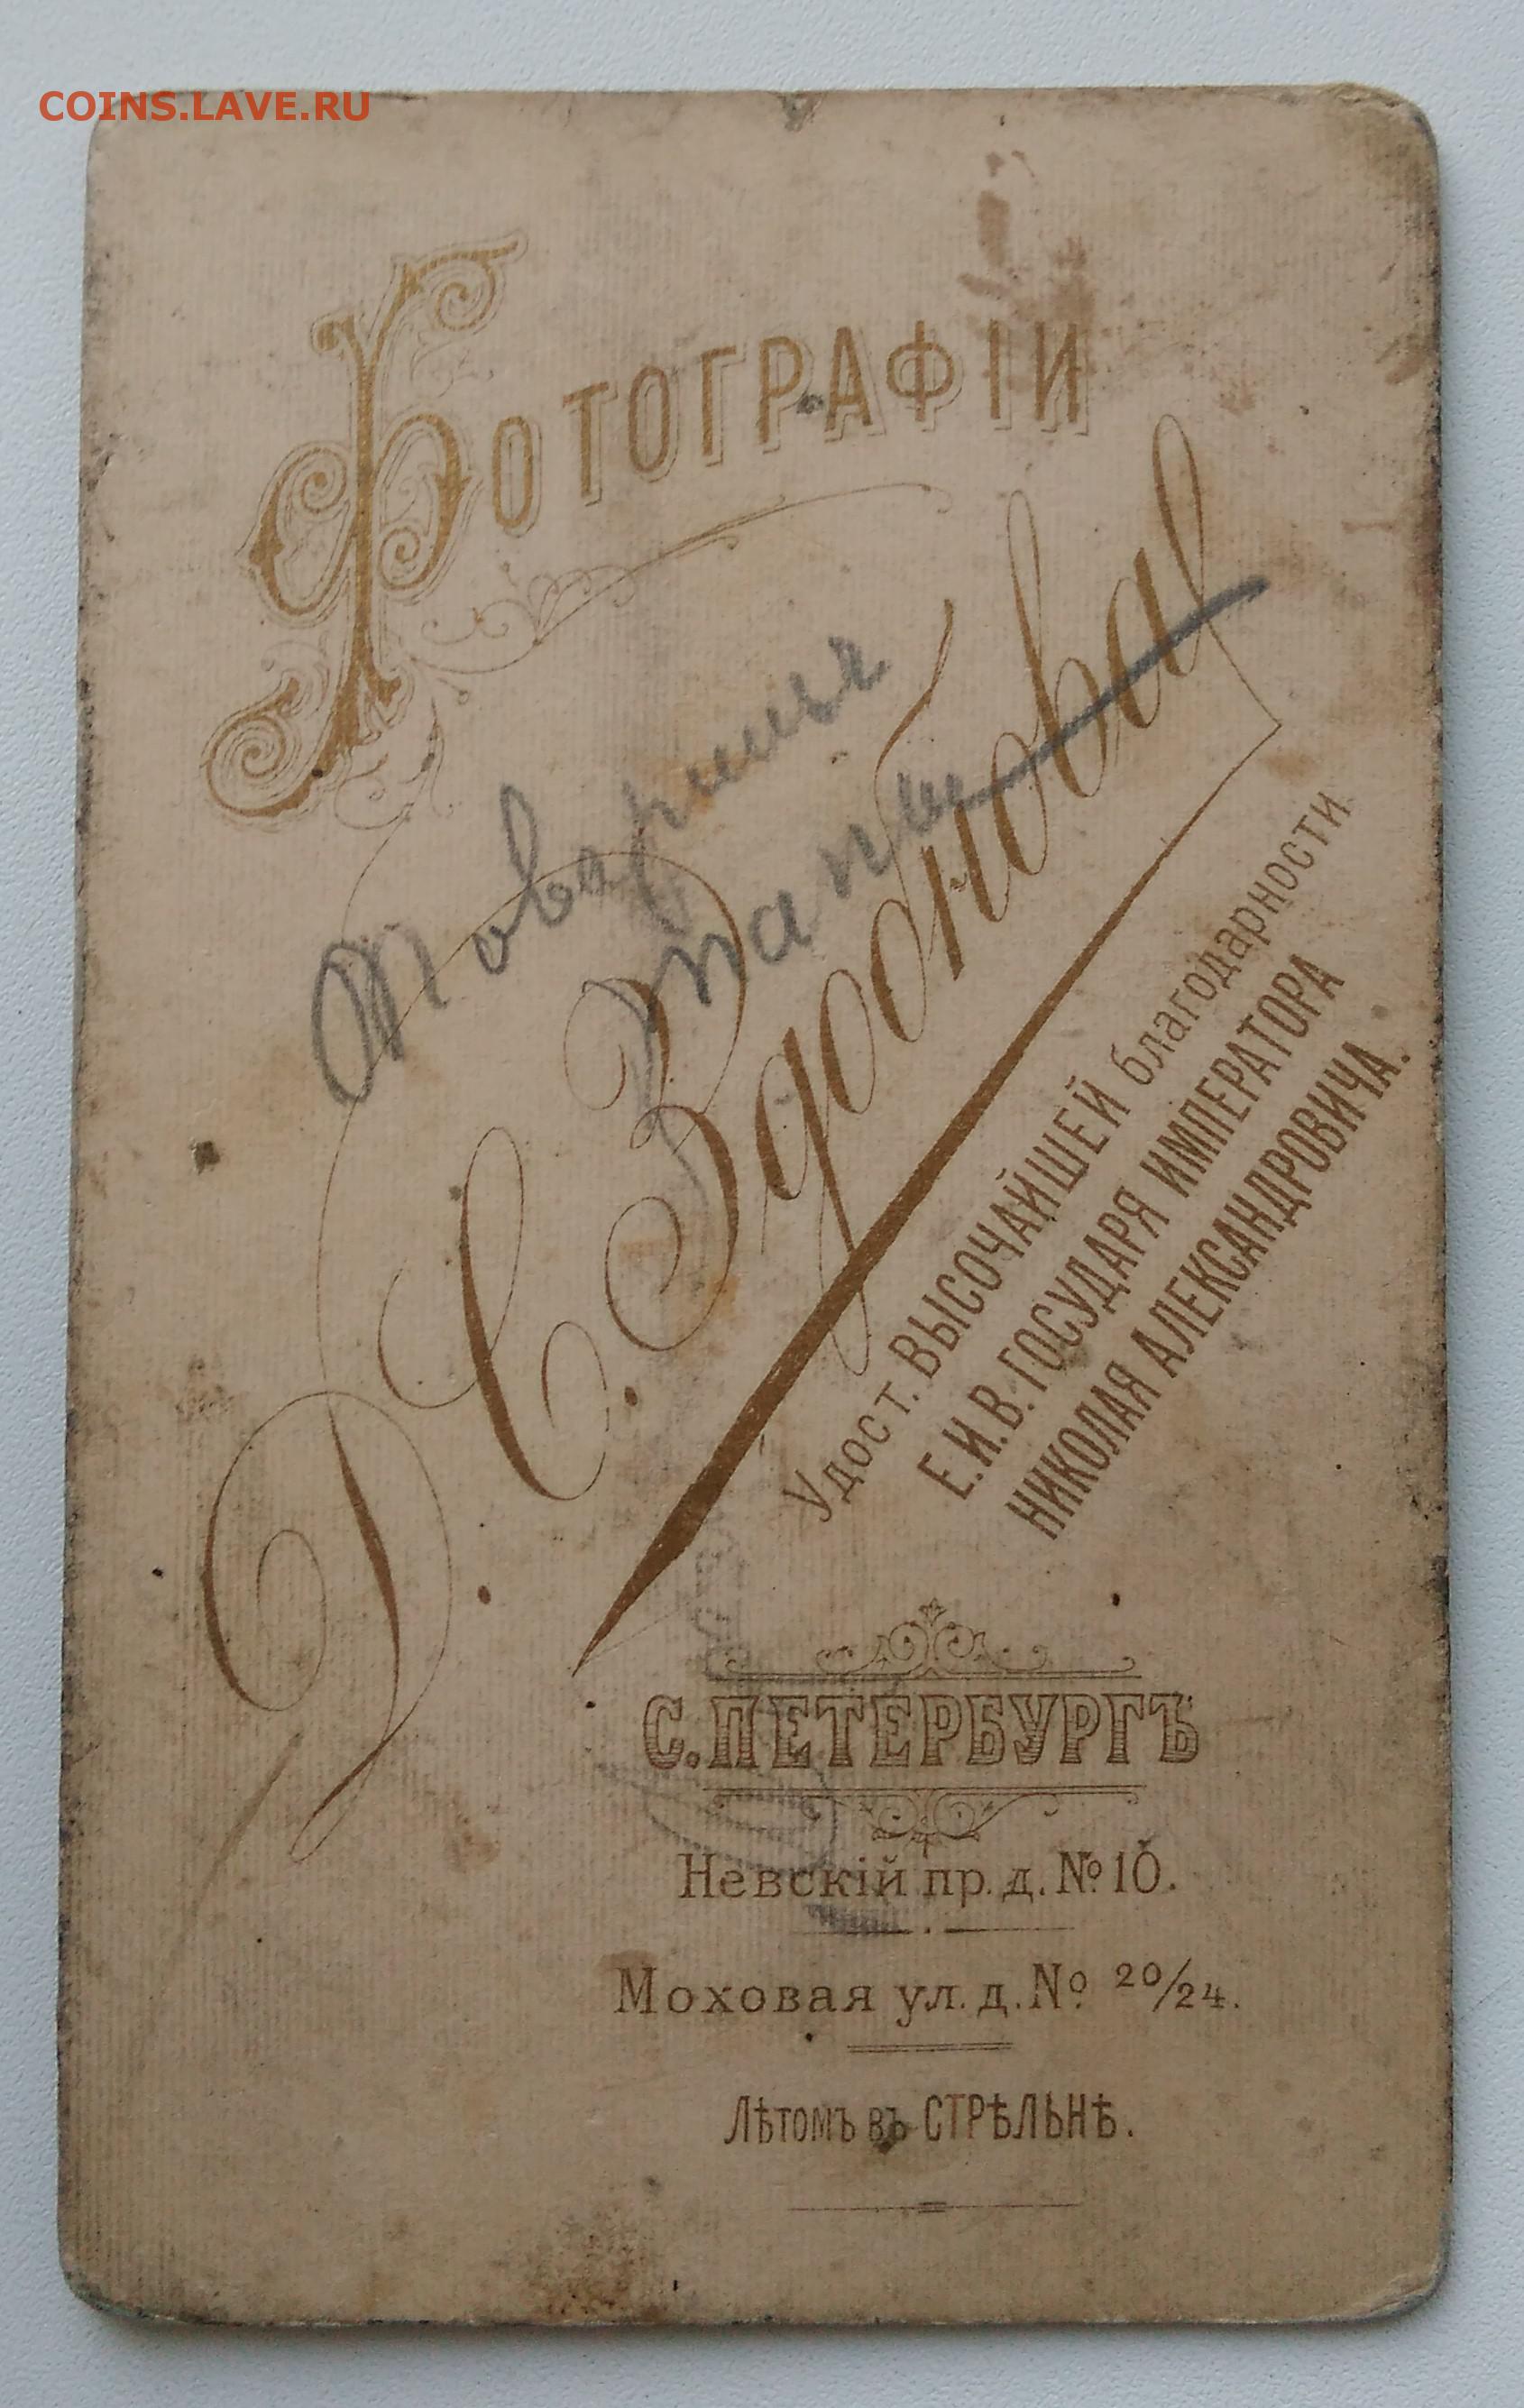 COINS.LAVE.RU
Фотографіи
Д. С. Здобнова
Удост. ВЫСОЧАЙШЕЙ благодарности
Е.И.В. ГОСУДАРЯ ИМПЕРАТОРА
НИКОЛАЯ АЛЕКСАНДРОВИЧА.
С.ПЕТЕРБУРГЪ
Невскій пр. д. № 10.
Моховая ул. д. № 20/24.
Лѣтомъ въ СТРѢЛЬНѢ.